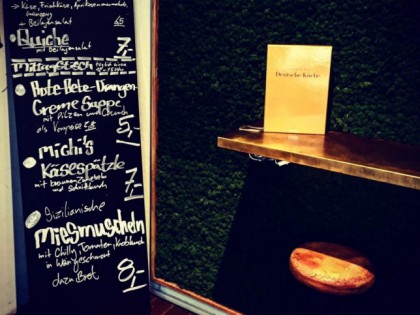 → Käse, Frischkäse, Aprikosenmarmelade,
+ Beilagensalat 6,5
Quiche
mit Beilagensalat 7,-
Mittagstisch
Rote-Bete-Orangen-
Creme Suppe
mit Pilzen und
als Vorspeise 5,-
Michi's
Käsespätzle
mit braunen Zwiebeln
und Schnittlauch 7,-
Sizilianische
Miesmuscheln
mit Chilly, Tomaten, Knoblauch
in Wein geschmort
dazu Brot 8,-
Deutsche Küche